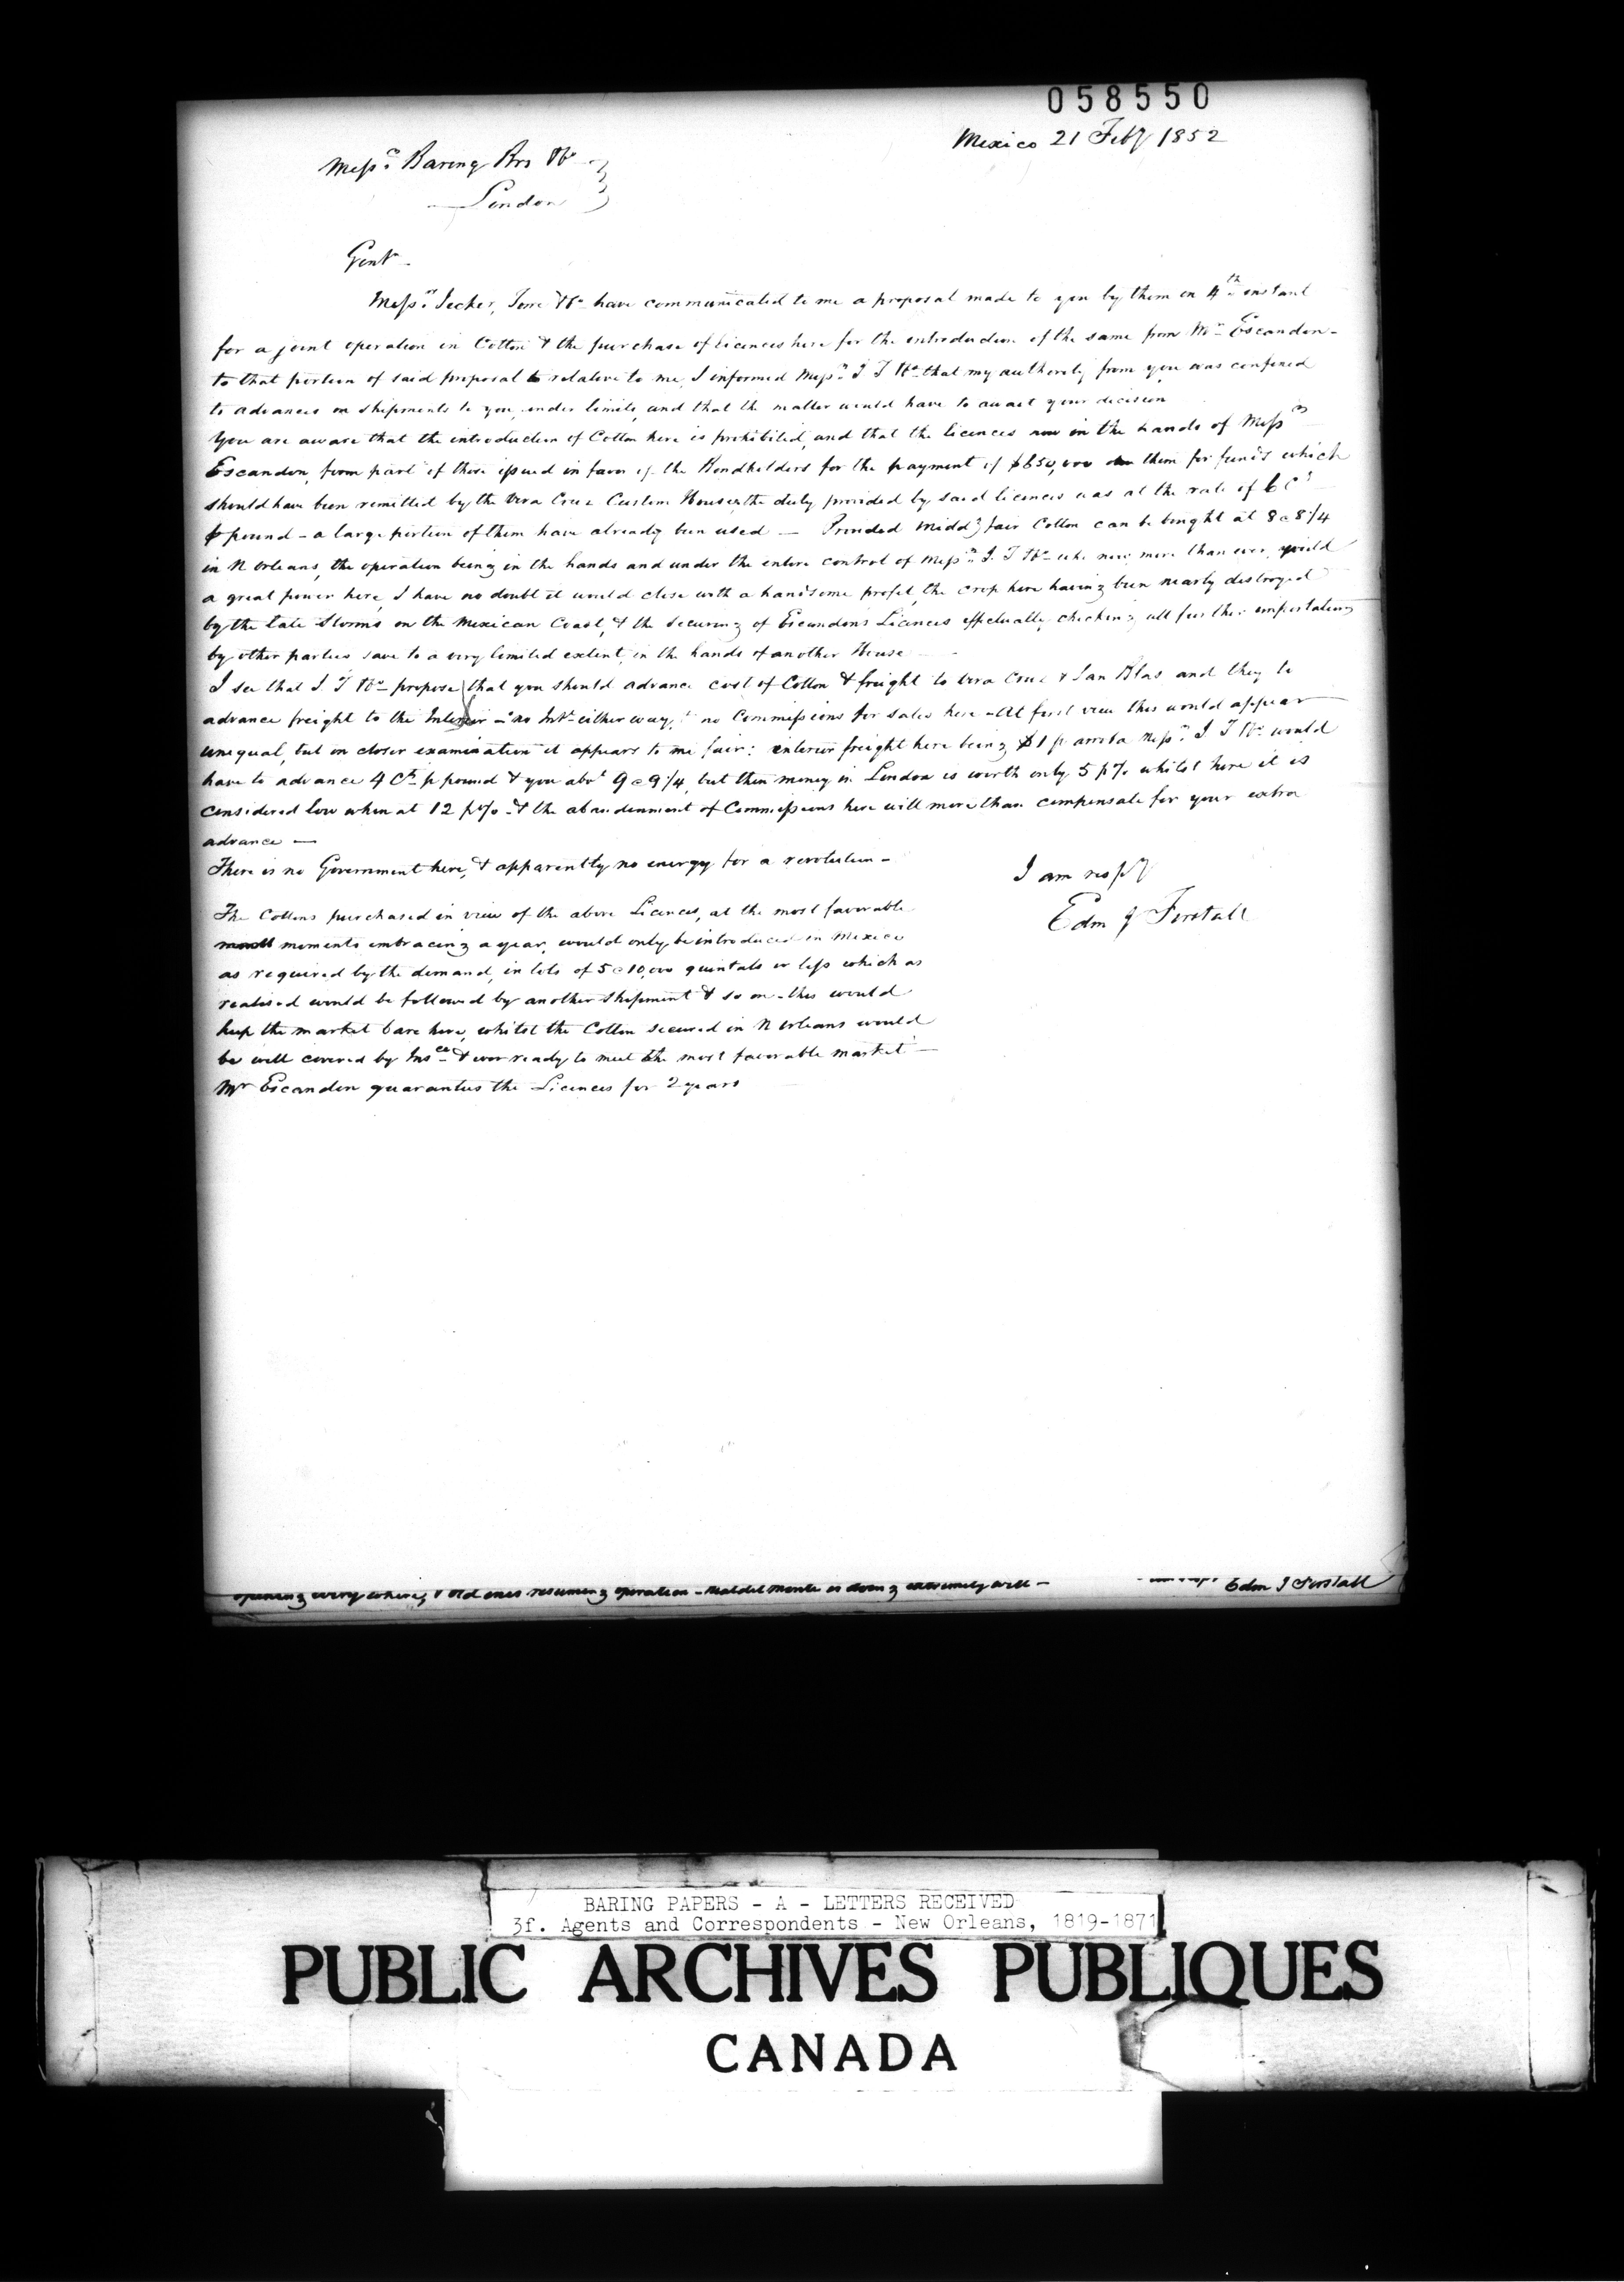 058550
Mexico 21 Feby 1852
Messrs Baring Brs & Co
London
Gentn
Messrs Jecker, Torre & Co have communicated to me a proposal made to you by them on 4th instant
for a joint operation in Cotton & the purchase of licences here for the introduction of the same from Mr Escandon -
to that portion of said proposal relative to me, I informed Messrs J T & Co that my authority from you was confined
to advances on shipments to you, under limits, and that the matter would have to await your decision
You are aware that the introduction of Cotton here is prohibited, and that the licences now in the hands of Messrs
Escandon, form part of those issued in favor of the Bondholders for the payment of $650,000 due them for funds which
should have been remitted by the Vera Cruz Custom House, the duty provided by said licences was at the rate of 6 Cs
p pound - a large portion of them have already been used - Provided Middg fair Cotton can be bought at 8 a 8 1/4
in N Orleans, the operation being in the hands and under the entire control of Messrs J. T & Co who now, more than ever, wield
a great power here, I have no doubt it would close with a handsome profit, the crop here having been nearly destroyed
by the late Storms on the Mexican Coast, & the securing of Escandons Licences effectually checking all further importations
by other parties save to a very limited extent, in the hands of another House
I see that J. T & Co propose that you should advance cost of Cotton & freight to Vera Cruz & San Blas and they to
advance freight to the Interior - no Int either way, no Commissions for sales here - At first view this would appear
unequal, but on closer examination it appears to me fair: interior freight here being $1 p arroba Messrs J T & Co would
have to advance 4 Cts p pound & you abt 9 a 9 1/4, but then money in London is worth only 5 p% whilst here it is
considered low when at 12 p% - & the abandonment of Commissions here will more than compensate for your extra
advance -
There is no Government here, & apparently no energy for a revolution -
I am respy
Edm J Forstall
The Cottons purchased in view of the above Licences, at the most favorable
moments embracing a year, would only be introduced in Mexico
as required by the demand, in lots of 5 a 10,000 quintals or less which as
realised would be followed by another shipment & so on - this would
keep the market bare here, whilst the Cotton secured in N Orleans would
be well covered by Insce & ever ready to meet the most favorable market -
Mr Escandon guarantees the Licences for 2 years
opening every where, & old ones resuming operation - Real del Monte is doing extremely well -
Edm J Forstall
BARING PAPERS - A - LETTERS RECEIVED
3f. Agents and Correspondents - New Orleans, 1819-1871
PUBLIC ARCHIVES PUBLIQUES
CANADA